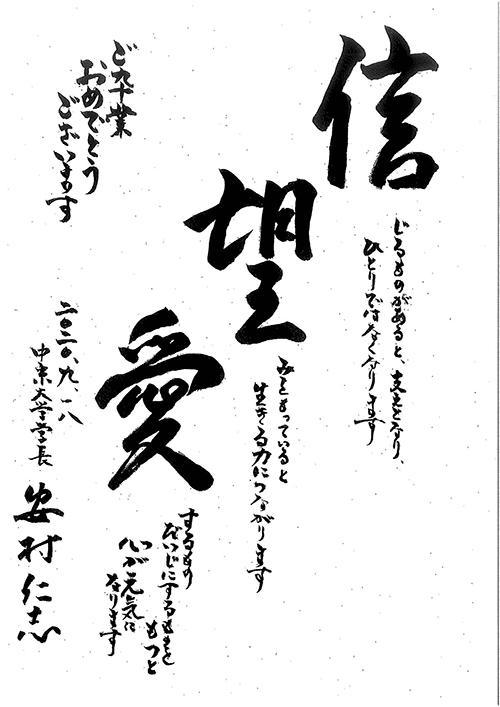 信
じるものがあると、支えとなり、
ひとりではなくなります
望
みをもっていると
生きる力につながります
愛
するもの
だいじにするものを
もつと
心が元気に
なります
ご卆業
おめでとう
ございます
二〇二〇、九、一八
中京大学学長
安村仁志